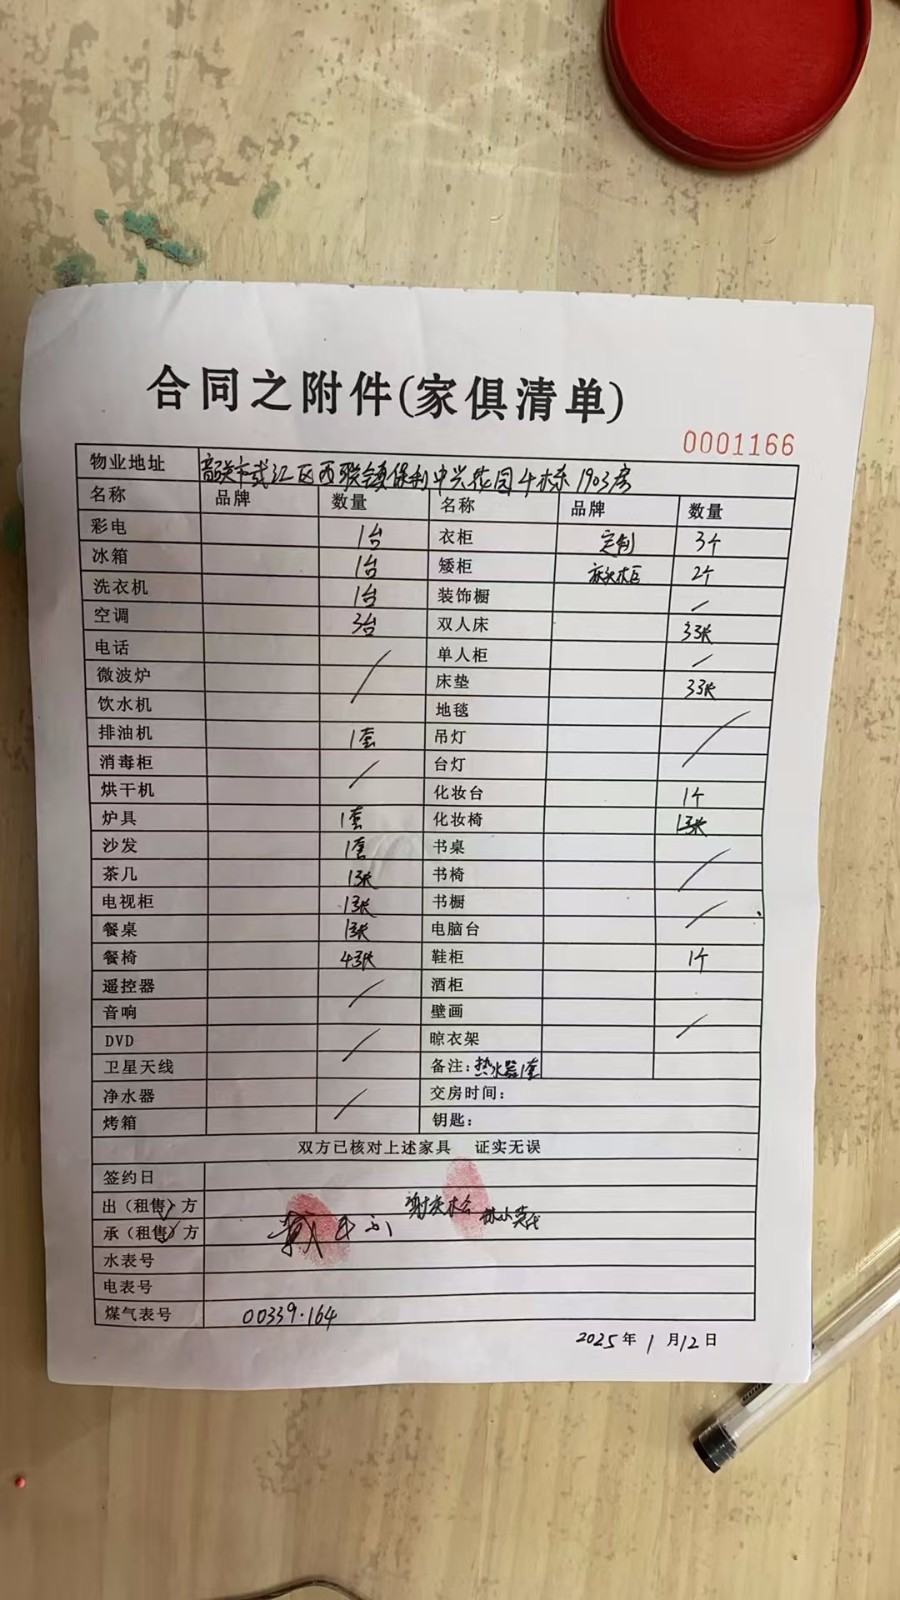 合同之附件(家俱清单)
0001166
物业地址 韶关市武江区西联镇保利中兴花园4栋1903房
名称 品牌 数量 名称 品牌 数量
彩电 1台 衣柜 定制 3个
冰箱 1台 矮柜 床头柜 2个
洗衣机 1台 装饰橱 /
空调 3台 双人床 3张
电话 单人柜 /
微波炉 / 床垫 3张
饮水机 地毯
排油机 1套 吊灯 /
消毒柜 / 台灯
烘干机 化妆台 1个
炉具 1套 化妆椅 1张
沙发 1套 书桌
茶几 1张 书椅 /
电视柜 1张 书橱
餐桌 1张 电脑台 /
餐椅 4张 鞋柜 1个
遥控器 / 酒柜
音响 壁画
DVD / 晾衣架 /
卫星天线 备注:热水器1套
净水器 交房时间:
烤箱 / 钥匙:
双方已核对上述家具 证实无误
签约日
出(租售)方
承(租售)方
水表号
电表号
煤气表号 00339.164
2025年1月12日